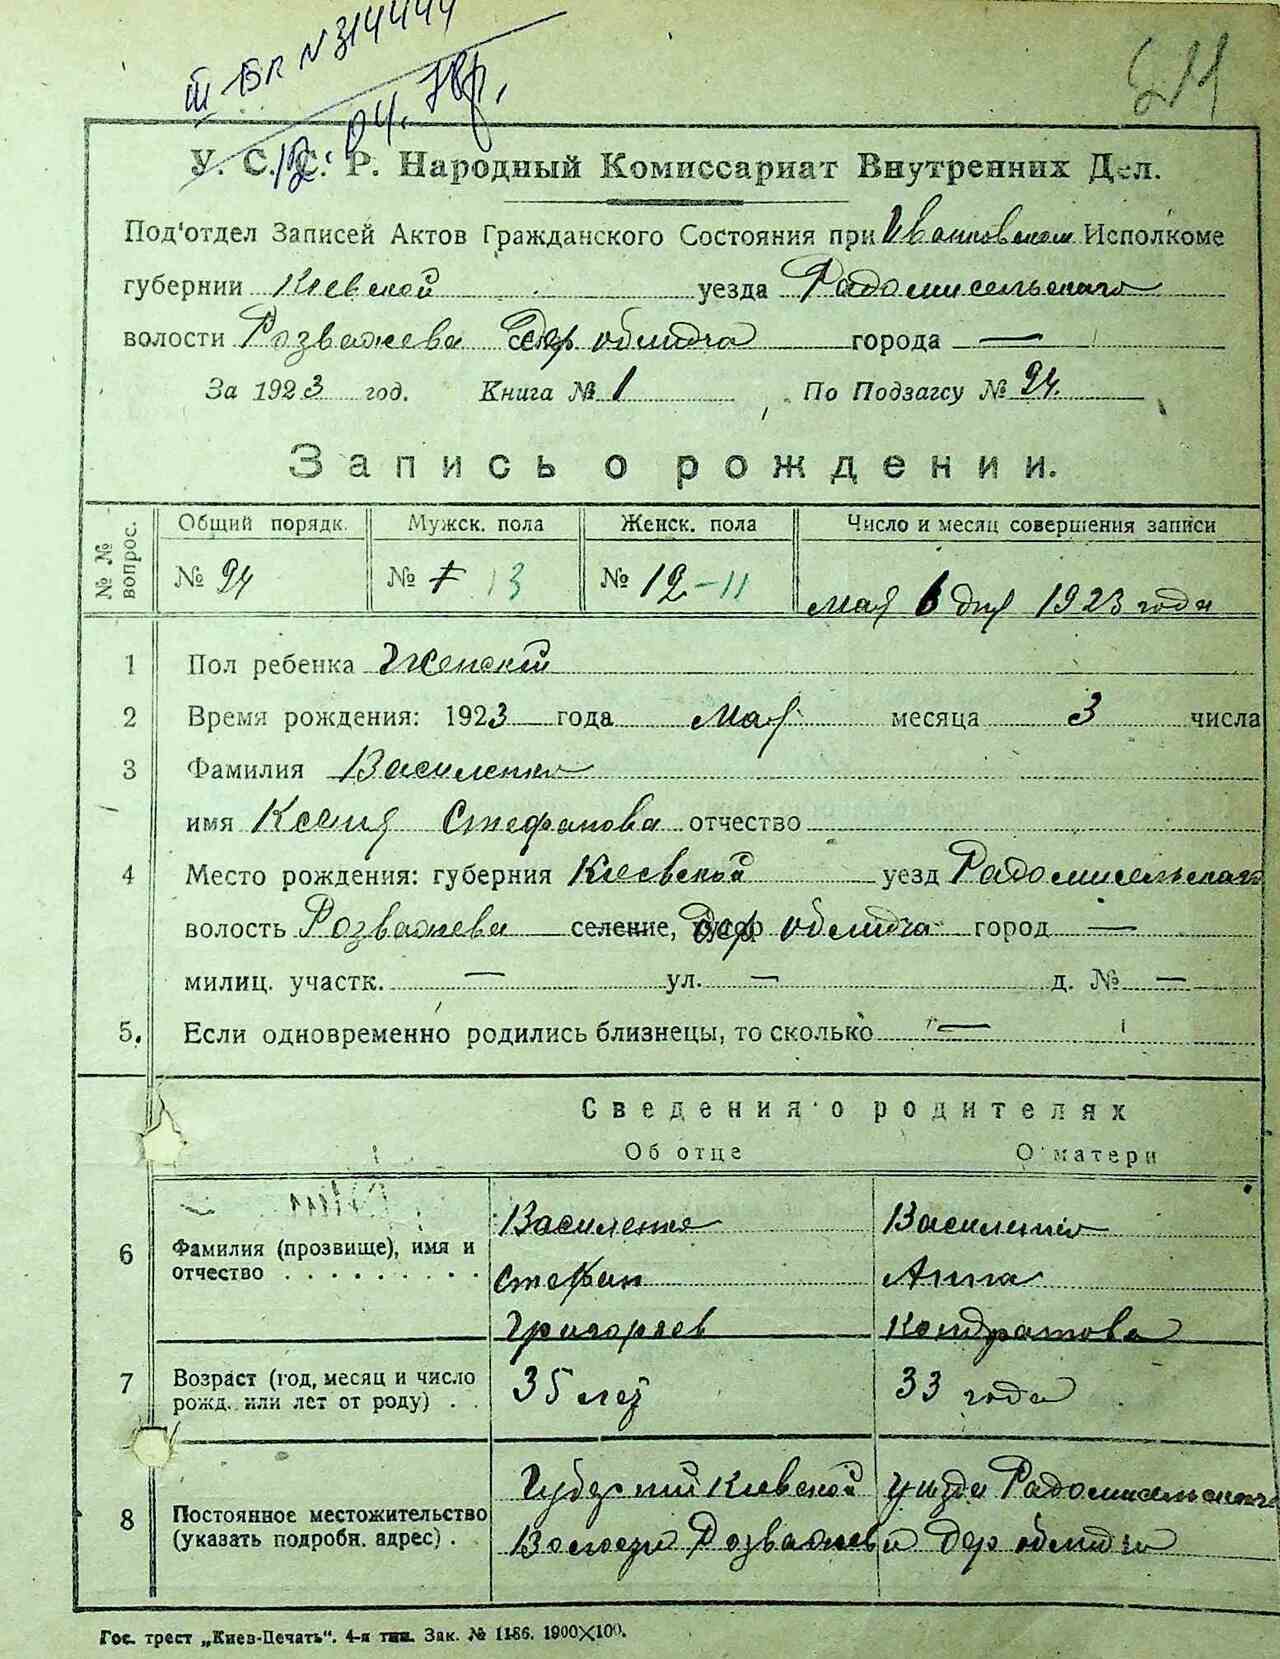 III БП N 314444
12. 04. 78р.
511
У. С. С. Р. Народный Комиссариат Внутренних Дел.
Под'отдел Записей Актов Гражданского Состояния при Иванковском Исполкоме
губернии Киевской уезда Радомисельского
волости Розважева дер облидча города —
За 1923 год. Книга № 1 По Подзагсу № 24.
Запись о рождении.
№ № вопрос. Общий порядк. Мужск. пола Женск. пола Число и месяц совершения записи
№ 24 № 13 № 12-11 мая 6 дня 1923 года
1 Пол ребенка Женский
2 Время рождения: 1923 года мая месяца 3 числа
3 Фамилия Василенко
имя Ксения Стефанова отчество
4 Место рождения: губерния Киевской уезд Радомисельского
волость Розважева селение, дер облидча город —
милиц. участк. — ул. — д. № —
5. Если одновременно родились близнецы, то сколько —
Сведения о родителях
Об отце О матери
Василенко Василенко
6 Фамилия (прозвище), имя и
отчество Стефан Анна
Григорьев Кондратова
7 Возраст (год, месяц и число
рожд. или лет от роду) 35 лет 33 года
Губерний Киевской уезда Радомисельского
8 Постоянное местожительство
(указать подробн. адрес) Волости Розважева дер облидчи
Гос. трест „Киев-Печать“. 4-я тип. Зак. № 1186. 1900×100.